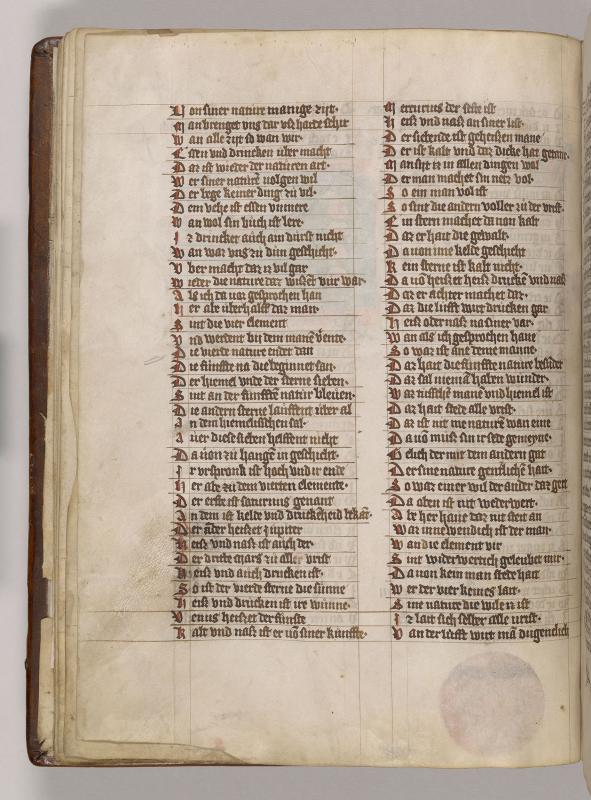 Von siner nature manige zijt
Man brenget vns dar vsz harde schir
Wan alle zijt so wan wir
Essen vnd drincken uber macht
Daz ist wieder der naturen art
Wer siner nature uolgen wil
Der lege keiner ding zu vil
Dem uehe ist essen vnmere
Wan wol sin buch ist lere
Iz drincket auch am durst nicht
Wan war vns zu dun geschicht
Vber macht daz iz vil gar
Wieder die nature daz wiszet vur war
Als ich da uor gesprochen han
Her abe uberhalff daz man
Sint die vier element
Vnd werdent bij dem mane vente
Die vierde nature endet dan
Die funffte na die beginnet san
Der hiemel vnde der sterne sieben
Sint an der funfften natur bleuen
Die andern sterne lauffent uber al
An dem hiemelischen sal
Aber diese sieben helffent nicht
Da uon zu hangen in geschicht
Ir vrspronk ist hoch vnd ir ende
Her abe zu dem vierten elemente
Der erste ist saturnus genant
An dem ist kelde vnd druckeheid bekant
Der ander heiszet jupiter
Heisz vnd nasz ist auch der
Der dritte mars zu aller vrist
Heisz vnd auch drucken ist
So ist der vierde sterne die sunne
Heisz vnd drucken ist ire wunne
Venus heiszet der funfte
Kalt vnd nasz ist er uon siner kunffte
Mercurius der seste ist
Heisz vnd nasz an siner list
Der siebende ist geheiszen mane
Der ist kalt vnd daz dicke hat getane
Man siht iz in allen dingen wol
Der man machet sin netz vol
So ein man vol ist
So sint die andern voller zu der vrist
Ein stern machet da uon kalt
Daz er hait die gewalt
Da uon ime kelde geschicht
Kein sterne ist kalt nicht
Da uon heiszet heisz drucken vnd nasz
Daz er achter machet daz
Daz die lufft wirt drucken gar
Heisz oder nasz na siner var
Wan als ich gesprochen haue
So waz ist ane deme manne
Daz hait die funffte nature besunder
Daz sal nieman haben wunder
Waz tusschen mane vnd hiemel ist
Daz hait stede alle vrist
Daz ist nit me nature wan eine
Da uon musz sin ir stede gemeyne
Gelich der mit dem andern gat
Der sine nature gentlichen hait
So waz einer wil der ander daz gert
Da oben ist nit wederwert
Abe her haue daz nit stett an
Waz inne wendich ist der man
Wan die element vir
Sint widerwertich geleubet mir
Da uon kein man stede hait
Wer der vier keines lait
Sine nature die wile iz ist
Iz lait sich selber alle vrist
Van der lufft wirt man dugentlich